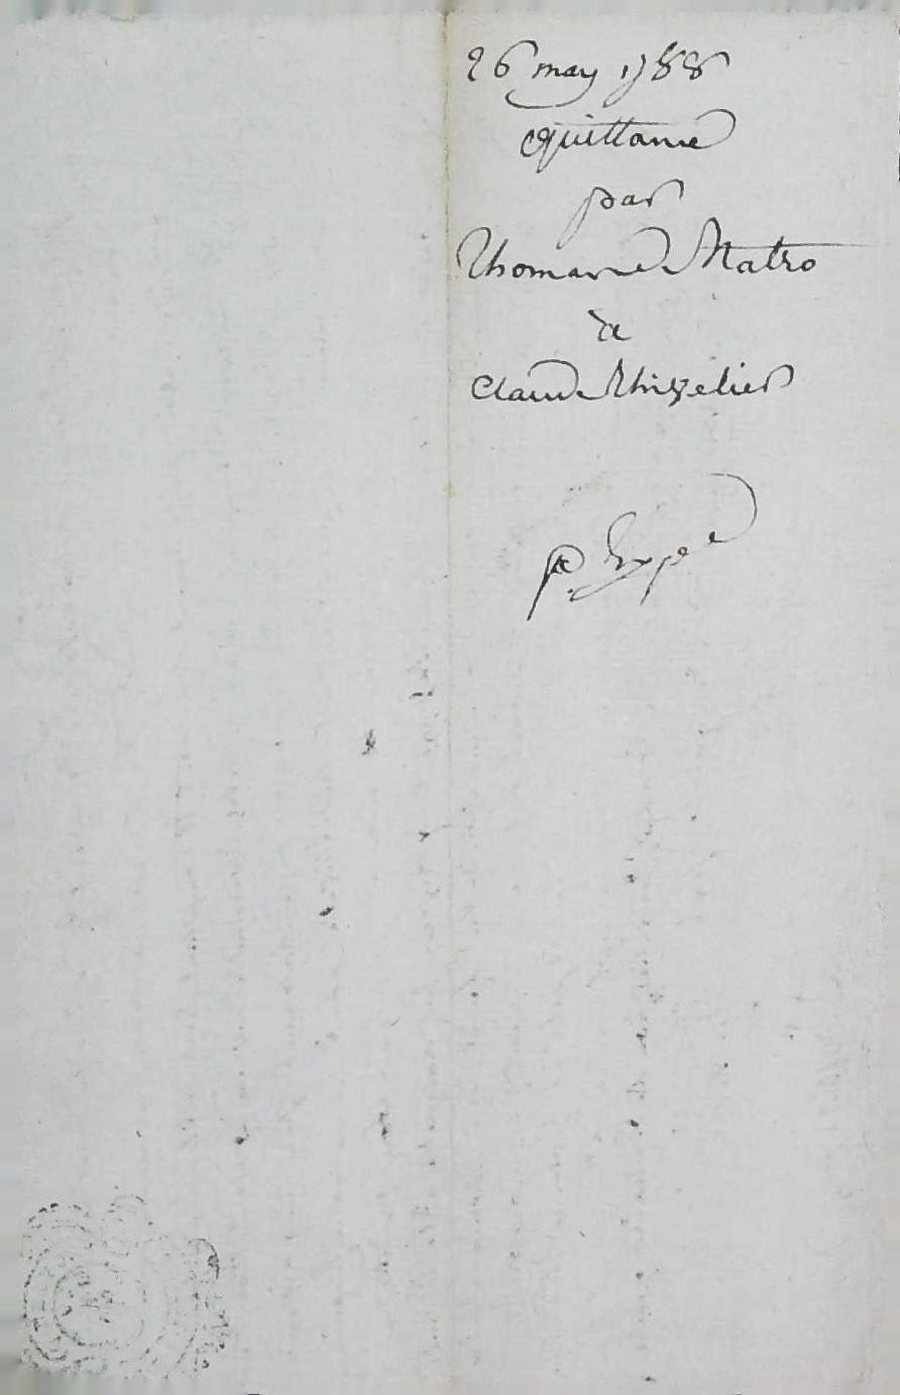 26 may 1788
quittance
par
Thomas Matro
à
Claude Thivelier